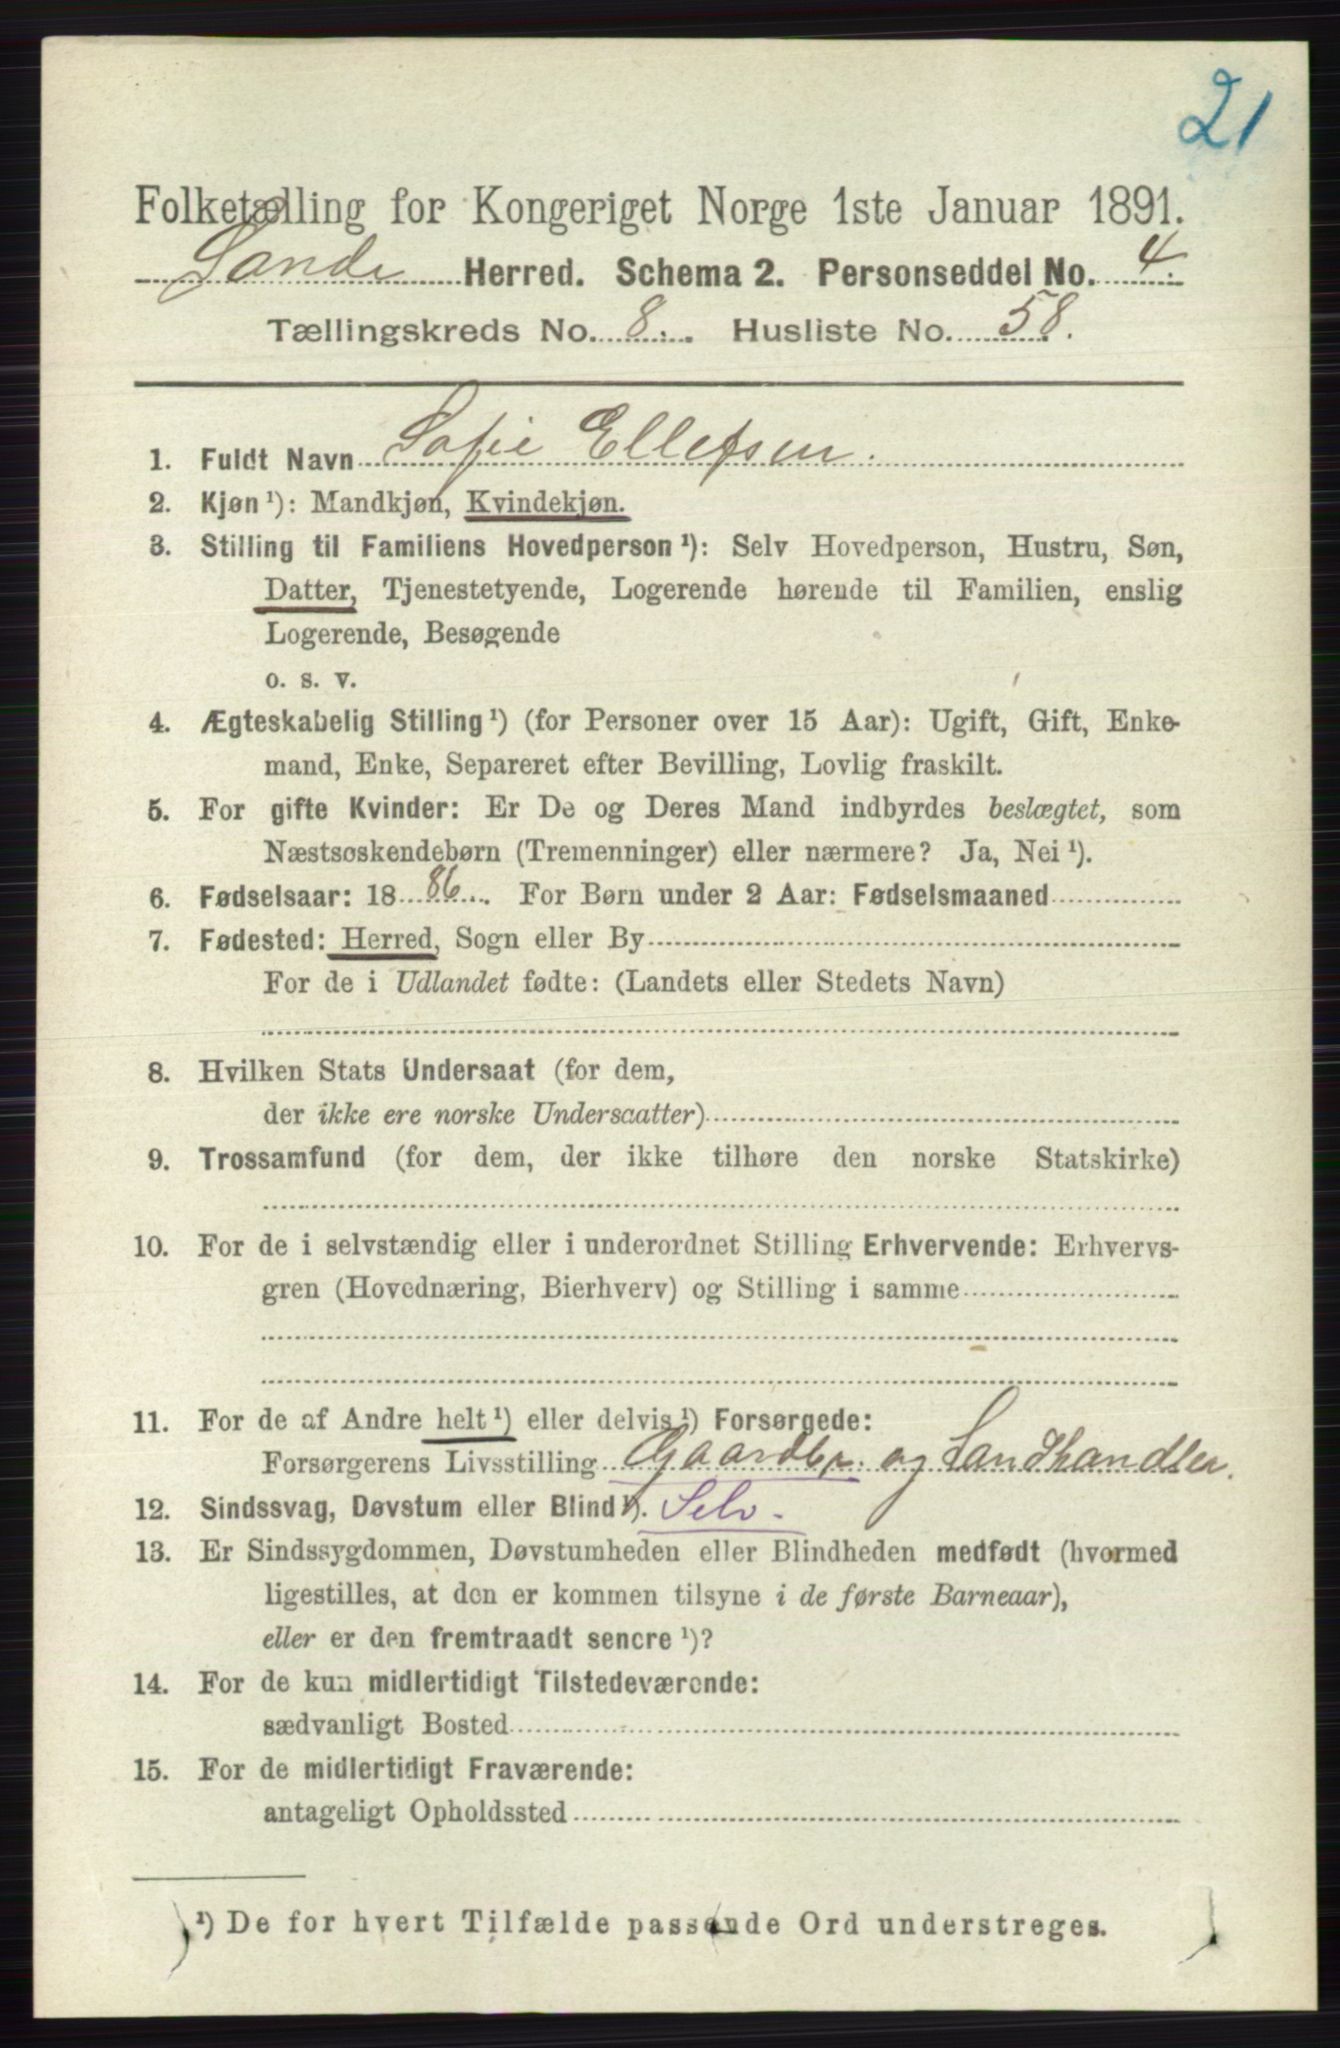 21
Folketælling for Kongeriget Norge 1ste Januar 1891.
Sande Herred. Schema 2. Personseddel No. 4.
Tællingskreds No. 8. Husliste No. 58.
1. Fuldt Navn Sofie Ellefsen.
2. Kjøn ¹): Mandkjøn, Kvindekjøn.
3. Stilling til Familiens Hovedperson ¹): Selv Hovedperson, Hustru, Søn,
Datter, Tjenestetyende, Logerende hørende til Familien, enslig
Logerende, Besøgende
o. s. v.
4. Ægteskabelig Stilling ¹) (for Personer over 15 Aar): Ugift, Gift, Enke-
mand, Enke, Separeret efter Bevilling, Lovlig fraskilt.
5. For gifte Kvinder: Er De og Deres Mand indbyrdes beslægtet, som
Næstsøskendebørn (Tremenninger) eller nærmere? Ja, Nei ¹).
6. Fødselsaar: 1886. For Børn under 2 Aar: Fødselsmaaned
7. Fødested: Herred, Sogn eller By
For de i Udlandet fødte: (Landets eller Stedets Navn)
8. Hvilken Stats Undersaat (for dem,
der ikke ere norske Undersaatter)
9. Trossamfund (for dem, der ikke tilhøre den norske Statskirke)
10. For de i selvstændig eller i underordnet Stilling Erhvervende: Erhvervs-
gren (Hovednæring, Bierhverv) og Stilling i samme
11. For de af Andre helt ¹) eller delvis ¹) Forsørgede:
Forsørgerens Livsstilling Gaardbr. og Landhandler.
12. Sindssvag, Døvstum eller Blind ¹). Selv.
13. Er Sindssygdommen, Døvstumheden eller Blindheden medfødt (hvormed
ligestilles, at den er kommen tilsyne i de første Barneaar),
eller er den fremtraadt senere ¹)?
14. For de kun midlertidigt Tilstedeværende:
sædvanligt Bosted
15. For de midlertidigt Fraværende:
antageligt Opholdssted
¹) De for hvert Tilfælde passende Ord understreges.